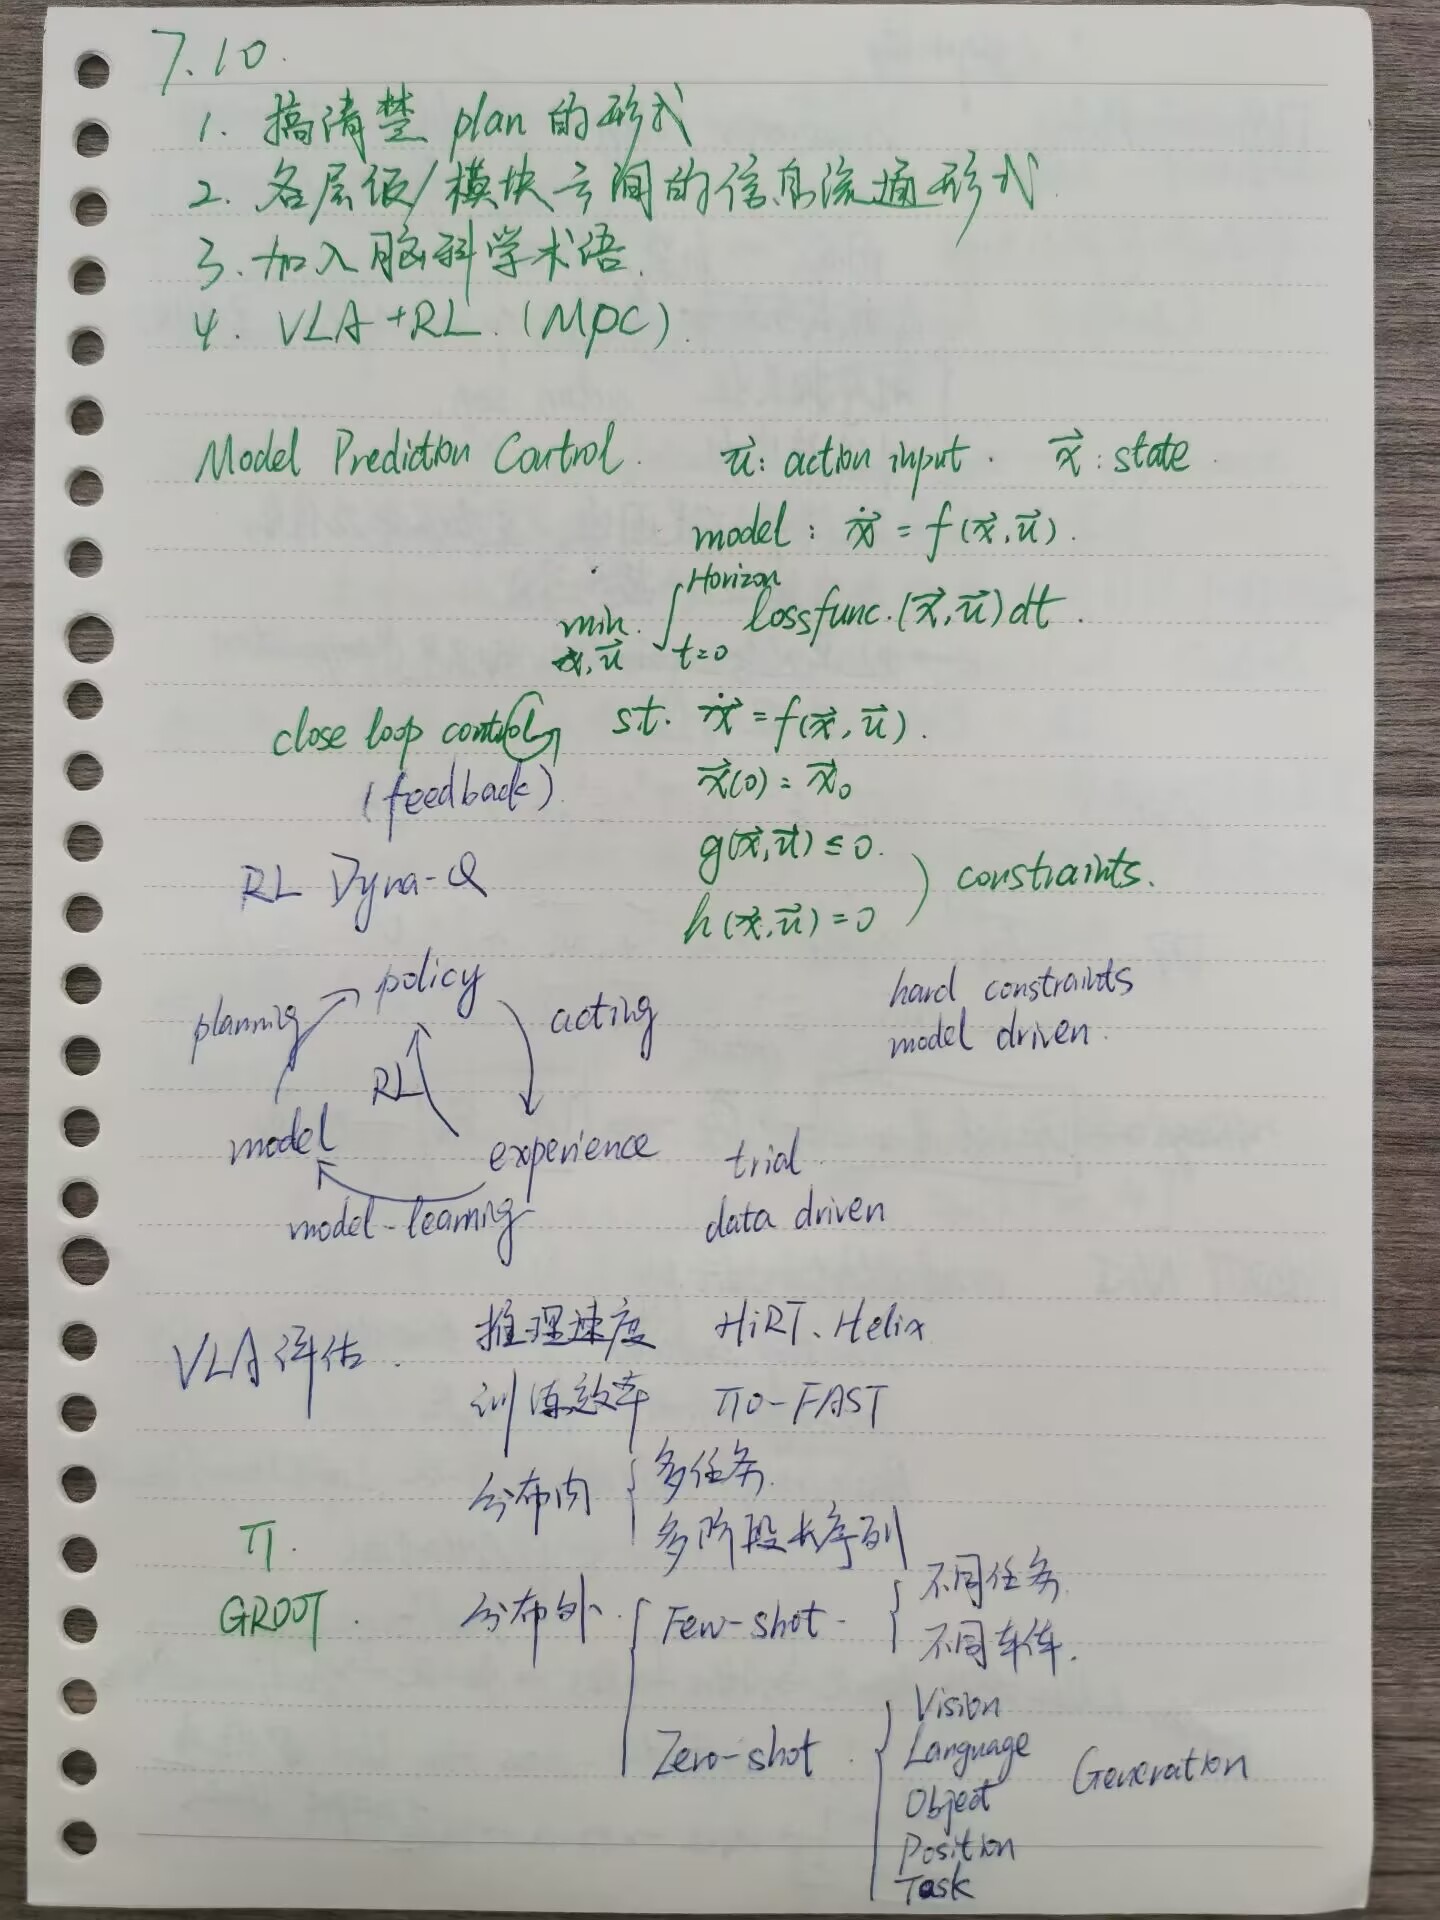 7.10.
1. 搞清楚 plan 的形式
2. 各层级/模块之间的信息流通形式
3. 加入脑科学术语.
4. VLA+RL. (MPC).
Model Prediction Control. u⃗: action input. x⃗: state.
model: ẋ⃗ = f(x⃗, u⃗).
min x⃗, u⃗ ∫ t=0 Horizon lossfunc.(x⃗, u⃗)dt.
close loop control s.t. ẋ⃗ = f(x⃗, u⃗).
(feedback). x⃗(0) = x⃗₀
g(x⃗, u⃗) ≤ 0.
RL Dyna-Q ) constraints.
h(x⃗, u⃗) = 0
policy hard constraints
planning acting model driven.
RL
model experience trial.
model-learning data driven
VLA评估. 推理速度 HiRT、Helix
训练效率 π0-FAST
分布内 { 多任务.
多阶段长序列
π.
GR00T. 分布外. { Few-shot { 不同任务.
不同车体.
Zero-shot { Vision
Language
Object Generation
Position
Task